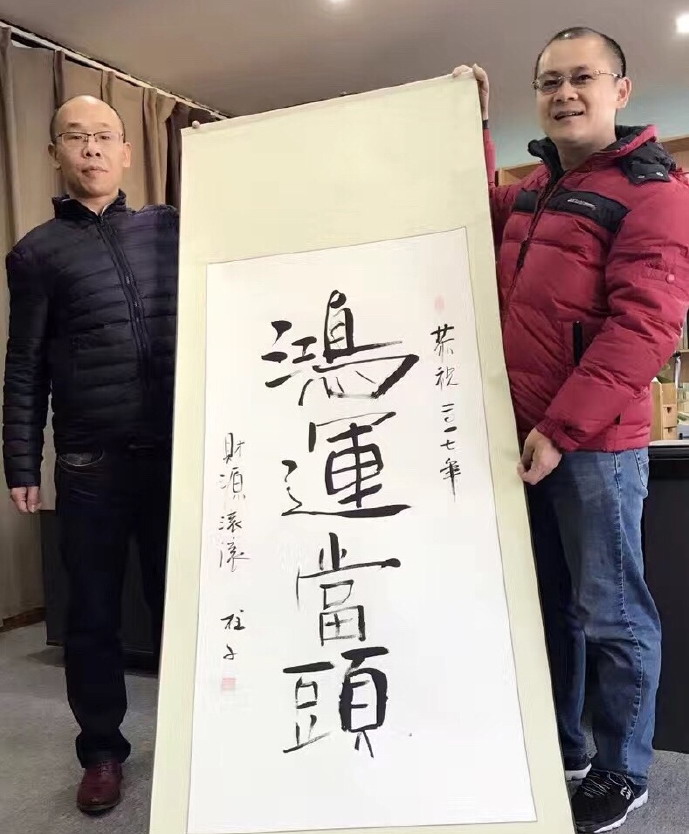 恭祝二〇一七年
鴻運當頭
財源滾滾
柱子